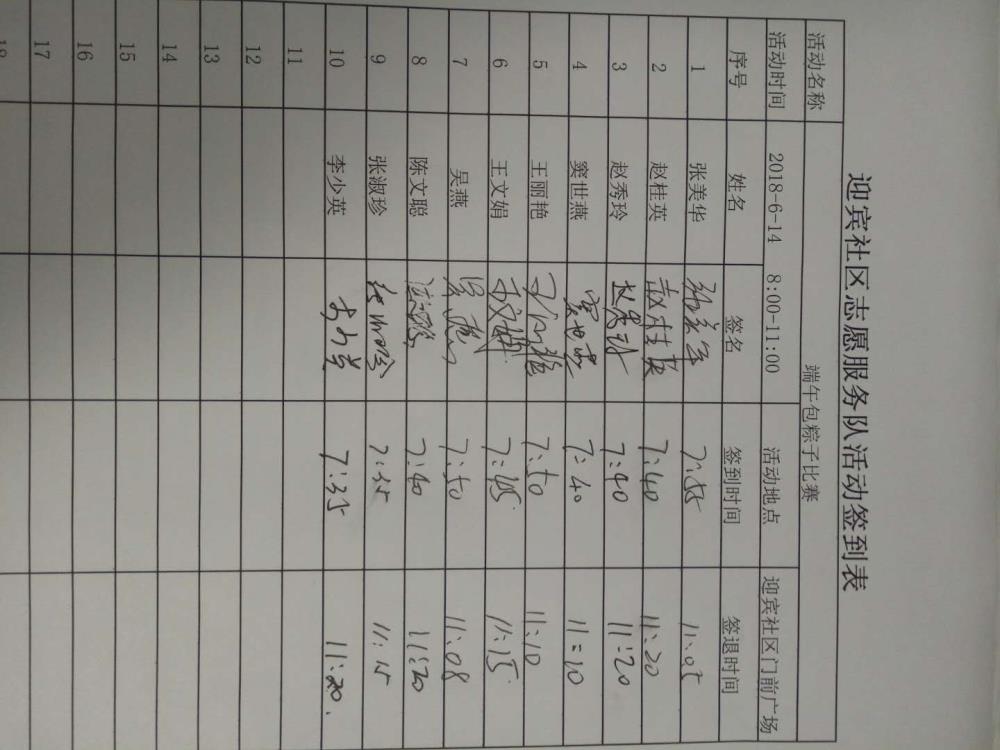 迎宾社区志愿服务队活动签到表
活动名称 端午包粽子比赛
活动时间 2018-6-14 8:00-11:00 活动地点 迎宾社区门前广场
序号 姓名 签名 签到时间 签退时间
1 张美华 张美华 7:55 11:05
2 赵桂英 赵桂英 7:40 11:20
3 赵秀玲 赵秀玲 7:40 11:20
4 窦世燕 窦世燕 7:40 11:10
5 王丽艳 王丽艳 7:50 11:10
6 王文娟 王文娟 7:45 11:15
7 吴燕 吴燕 7:50 11:08
8 陈文聪 陈文聪 7:40 11:20
9 张淑珍 张淑珍 7:35 11:15
10 李少英 李少英 7:35 11:20.
11
12
13
14
15
16
17
18